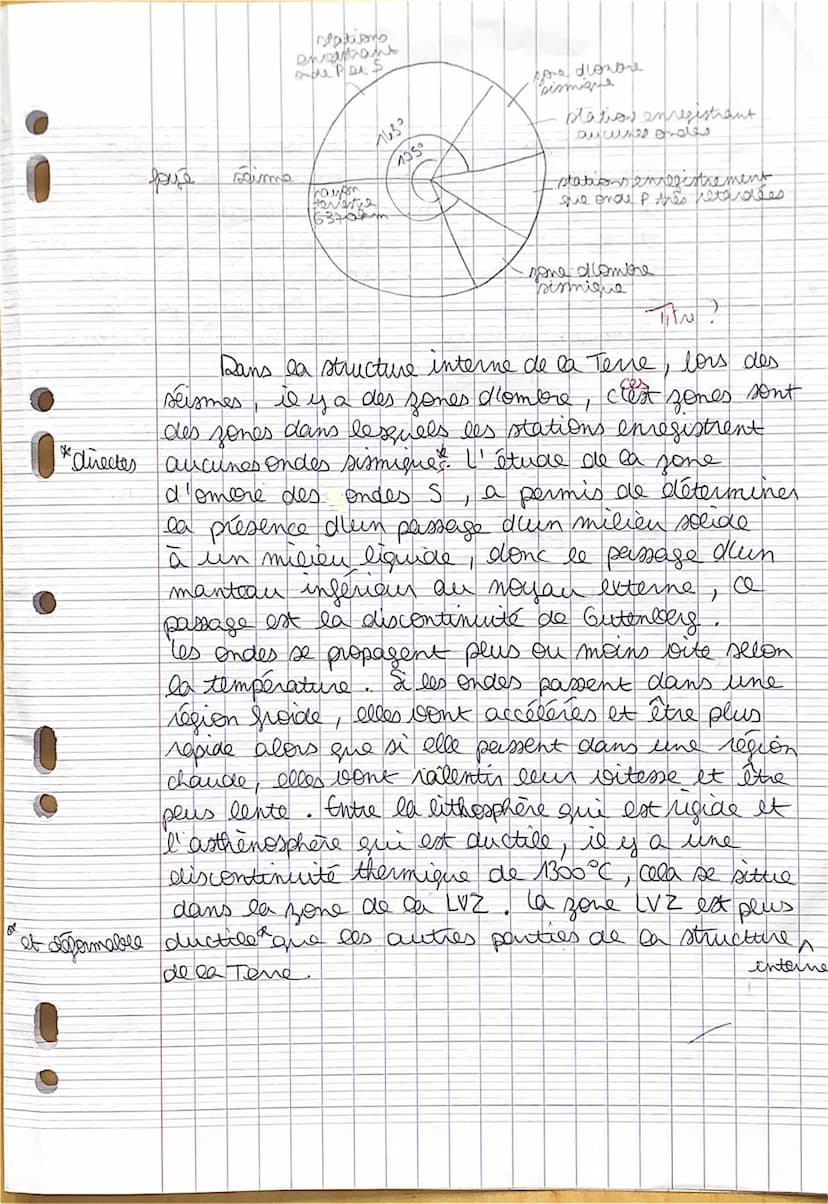 stations
enregistrant
onde P et S
zone d'ombre
sismique
station enregistrant
aucunes ondes
143°
105°
foyé séisme
rayon
terrestre
6370km
stations enregistrement
que onde P très retardées
zone d'ombre
sismique
Titre ?
Dans la structure interne de la Terre, lors des
séismes, il y a des zones d'ombre, c'est ces zones sont
des zones dans lesquels les stations enregistrent
*directes aucunes ondes sismiques*. L'étude de la zone
d'ombre des ondes S, a permis de déterminer
la présence d'un passage d'un milieu solide
à un milieu liquide, donc le passage d'un
manteau inférieur au noyau externe, ce
passage est la discontinuité de Gutenberg.
Les ondes se propagent plus ou moins vite selon
la température. Si les ondes passent dans une
région froide, elles vont accélérés et être plus
rapide alors que si elle passent dans une région
chaude, elles vont ralentir leur vitesse et être
plus lente. Entre la lithosphère qui est rigide et
l'asthénosphère qui est ductile, il y a une
discontinuité thermique de 1300°C, cela se situe
dans la zone de la LVZ. La zone LVZ est plus
*et déformable ductile* que les autres parties de la structure
interne
de la Terre.